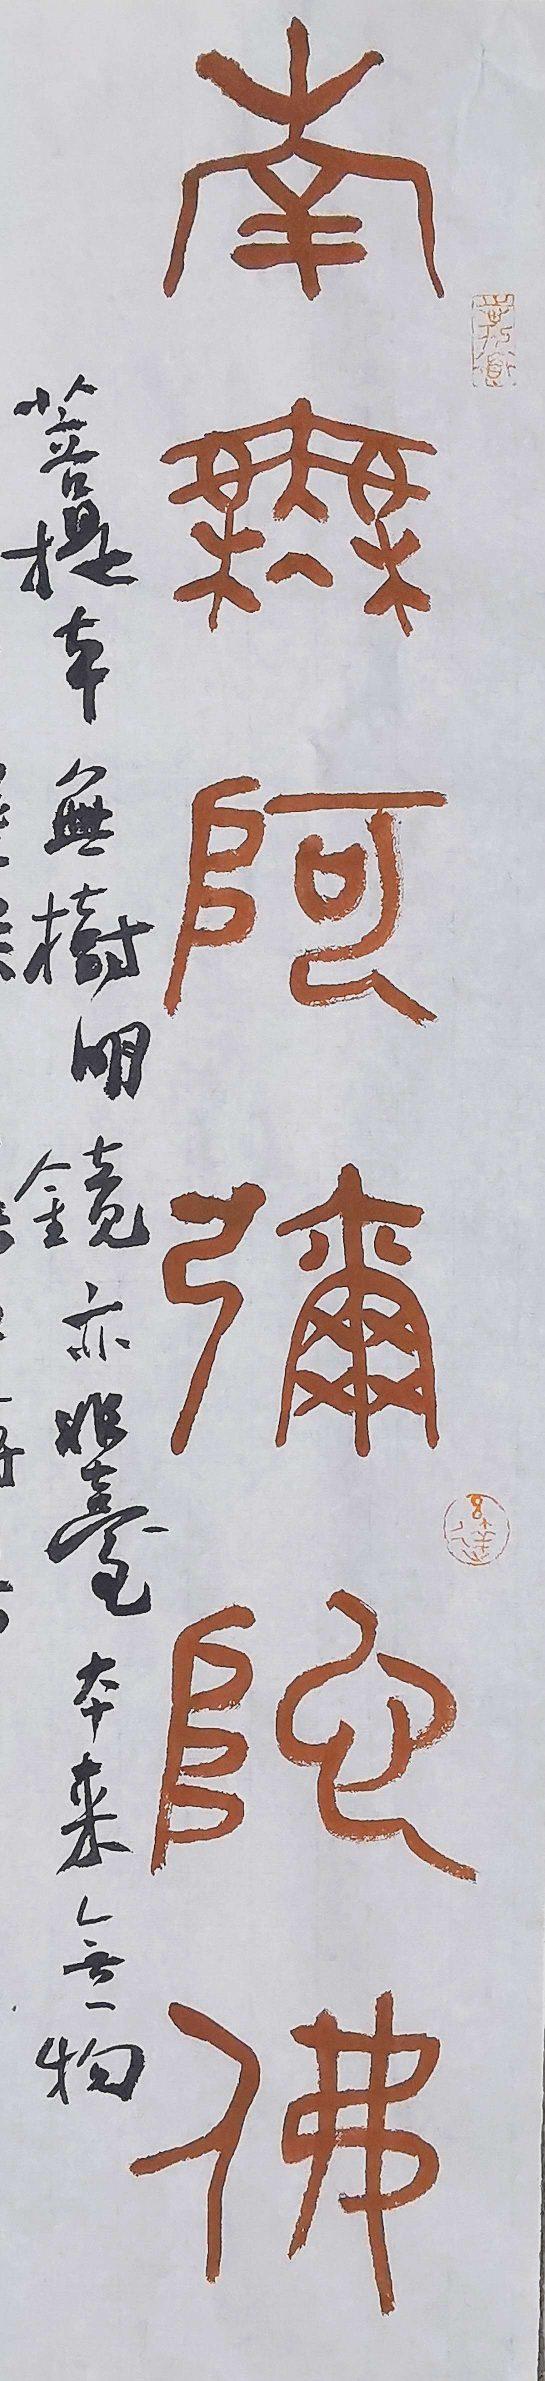 南無阿彌陀佛
菩提本無樹明鏡亦非臺本来無一物